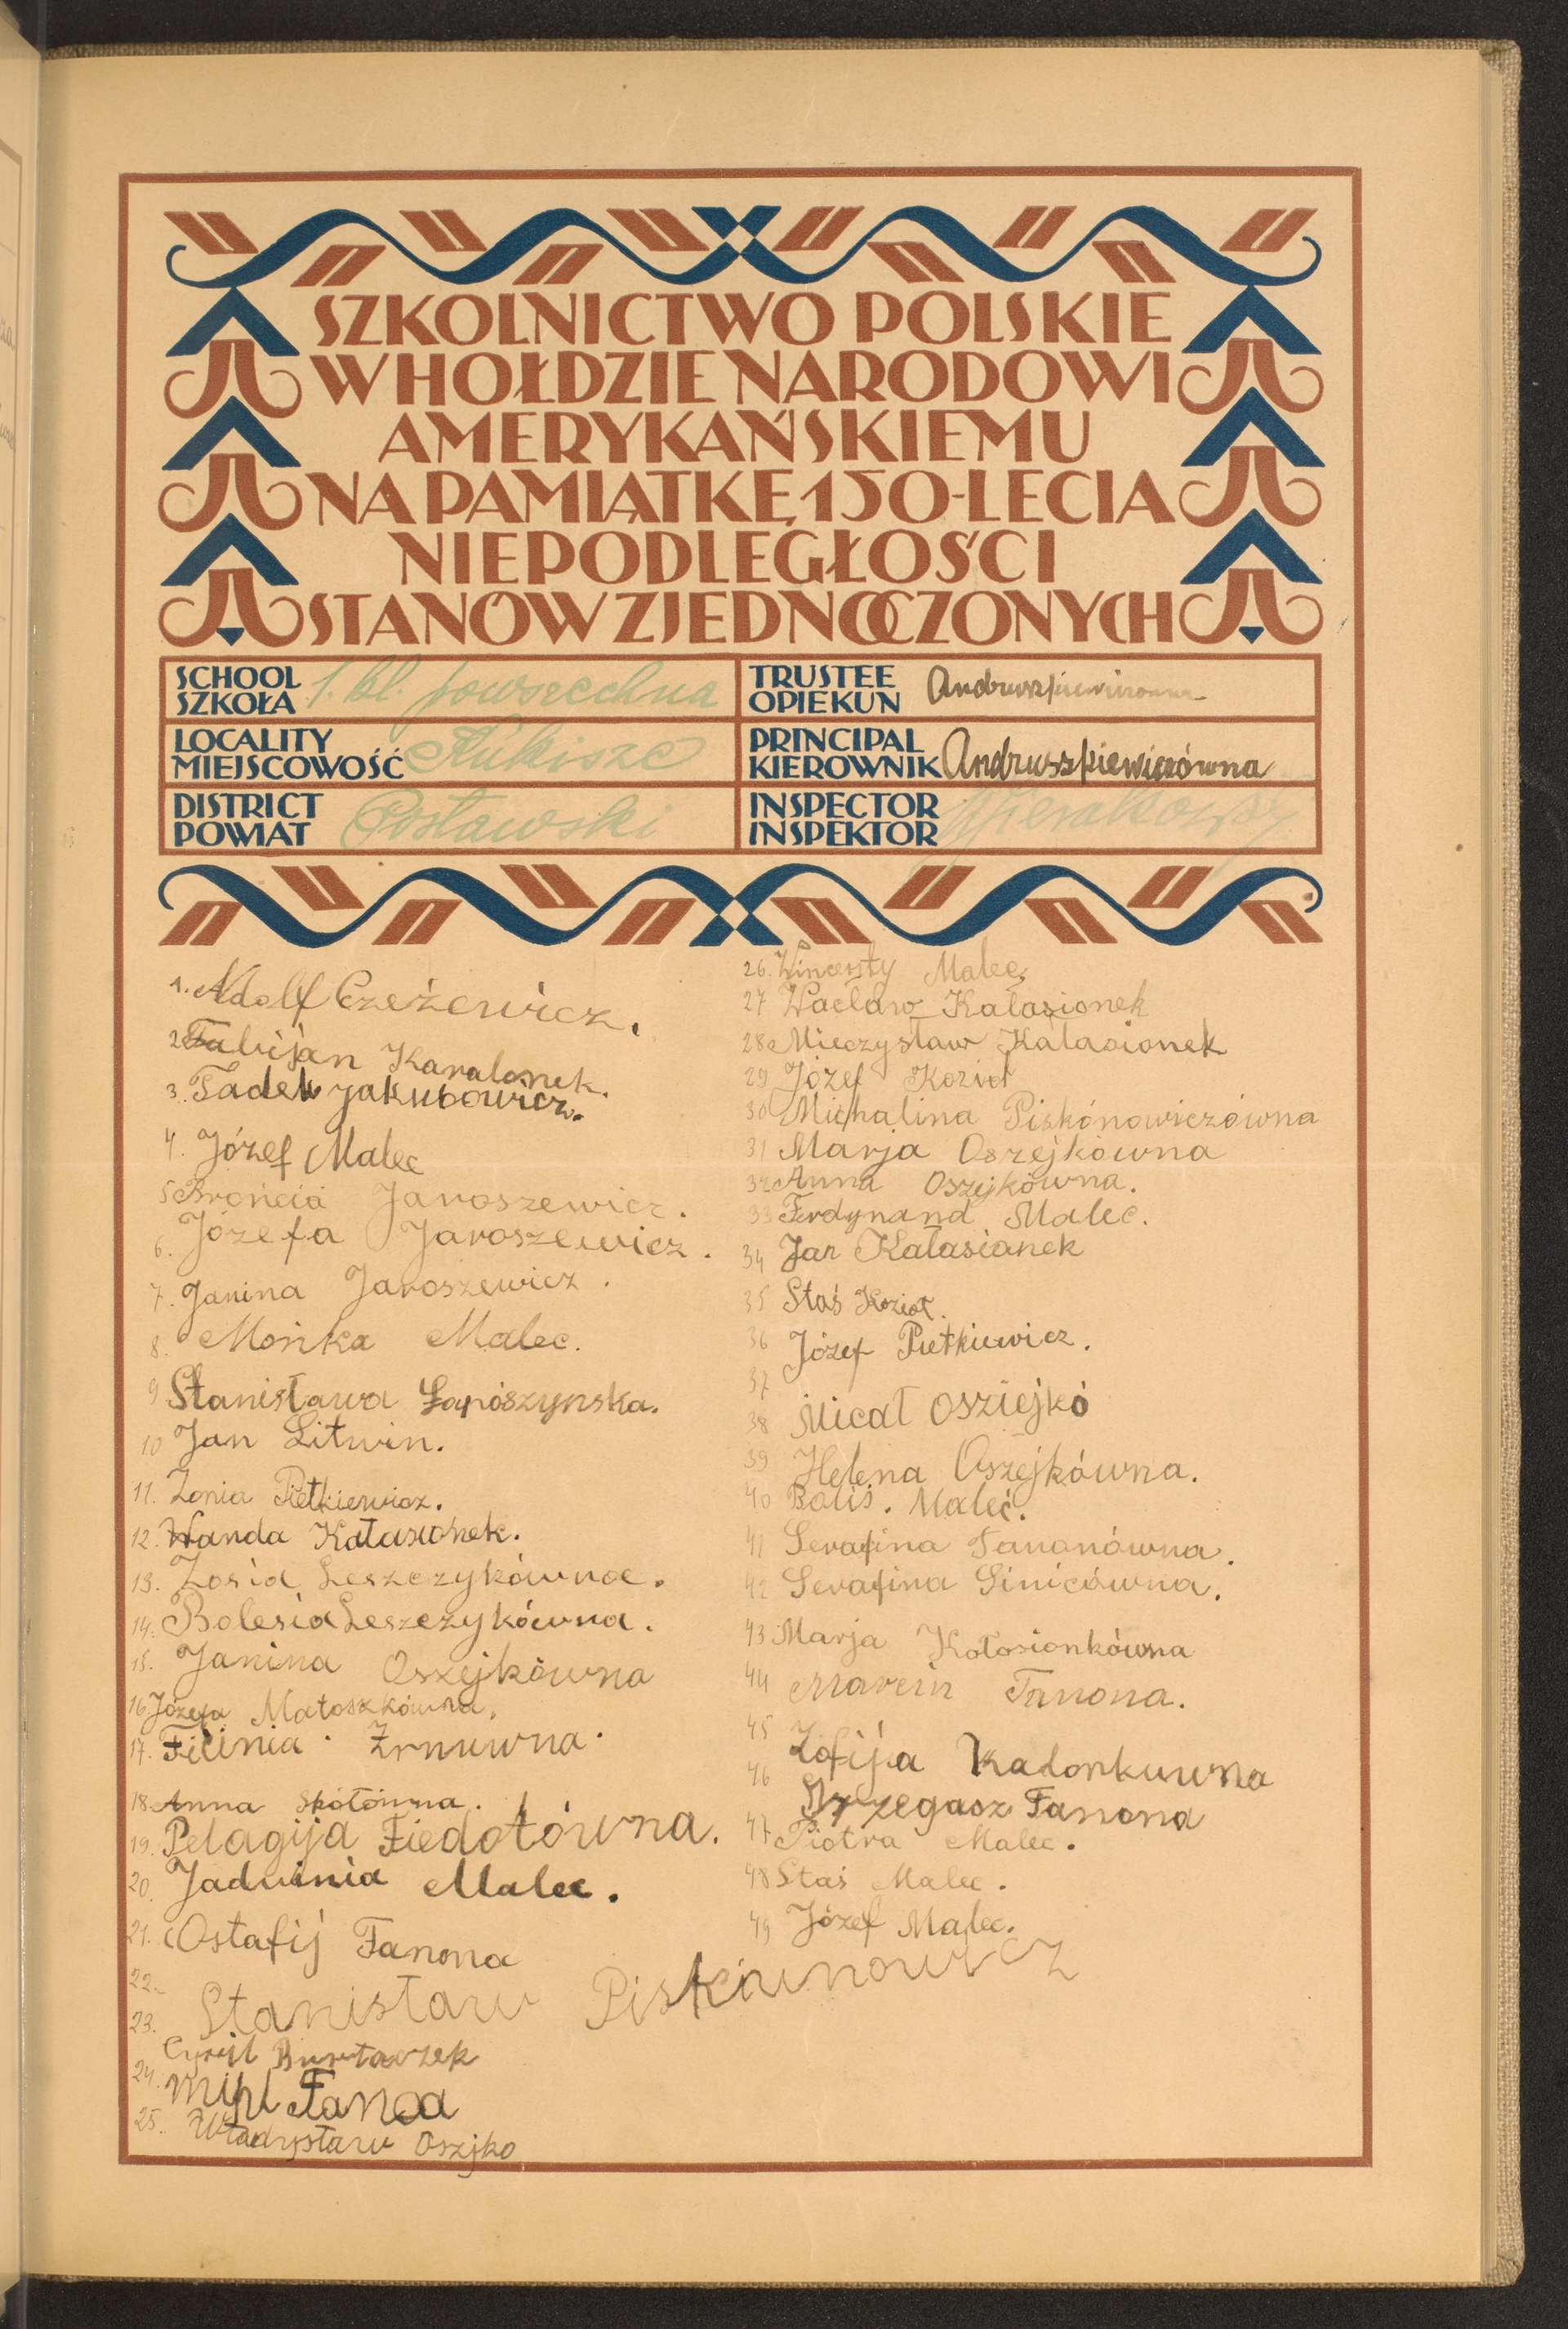 SZKOLNICTWO POLSKIE
W HOŁDZIE NARODOWI
AMERYKAŃSKIEMU
NA PAMIĄTKĘ 150-LECIA
NIEPODLEGŁOŚCI
STANÓW ZJEDNOCZONYCH
SCHOOL
SZKOŁA 1. kl. powszechna
LOCALITY
MIEJSCOWOŚĆ
DISTRICT
POWIAT Postawski
TRUSTEE
OPIEKUN
PRINCIPAL
KIEROWNIK Andruszkiewiczówna
INSPECTOR
INSPEKTOR
1. Adolf Czeżewicz.
2 Fabijan Karalonek.
3. Tadek jakubowicz.
4. Józef Malec
5 Brońcia Jaroszewicz.
6. Józefa Jaroszewicz.
7. Janina Jaroszewicz.
8. Mońka Malec.
9 Stanisława Łapószynska.
10 Jan Litwin.
11. Zonia Pietkiewicz.
12. Wanda Kałasionek.
13. Zosia Leszczykówna.
14. Bolesia Leszczykówna.
15. Janina Oszejkówna
16 Józefa Matoszkówna.
17. Filinia Zrnuwna.
18 Anna Skołówna.
19. Pelagija Fiedotówna.
20. Jadwinia Malec.
21. Ostafij Fanona
22.
23. Stanisław Piskunowicz
Cyryl
24.
25. Władysław Oszjko
26. Wincenty Malec
27 Wacław Kałasionek
28 Mieczysław Kałasionek
29 Józef Kozioł
30 Michalina Piskónowiczówna
31 Marja Oszejkówna
32 Anna Oszejkówna.
33 Ferdynand Malec.
34 Jan Kałasianek
35 Staś Kozioł.
36 Józef Pietkiewicz.
37
38 Micał Osziejkó
39 Helena Oszejkówna.
40 Bolis. Maleć.
41 Serafina Fananówna.
42 Serafina Sinicówna.
43 Marja Kołosionkówna
44 Marcin Fanona.
45 Zofija Kadonkuwna
46 Grzegasz Fanona
47 Piotra Malec.
48 Staś Malec.
49 Józef Malec.